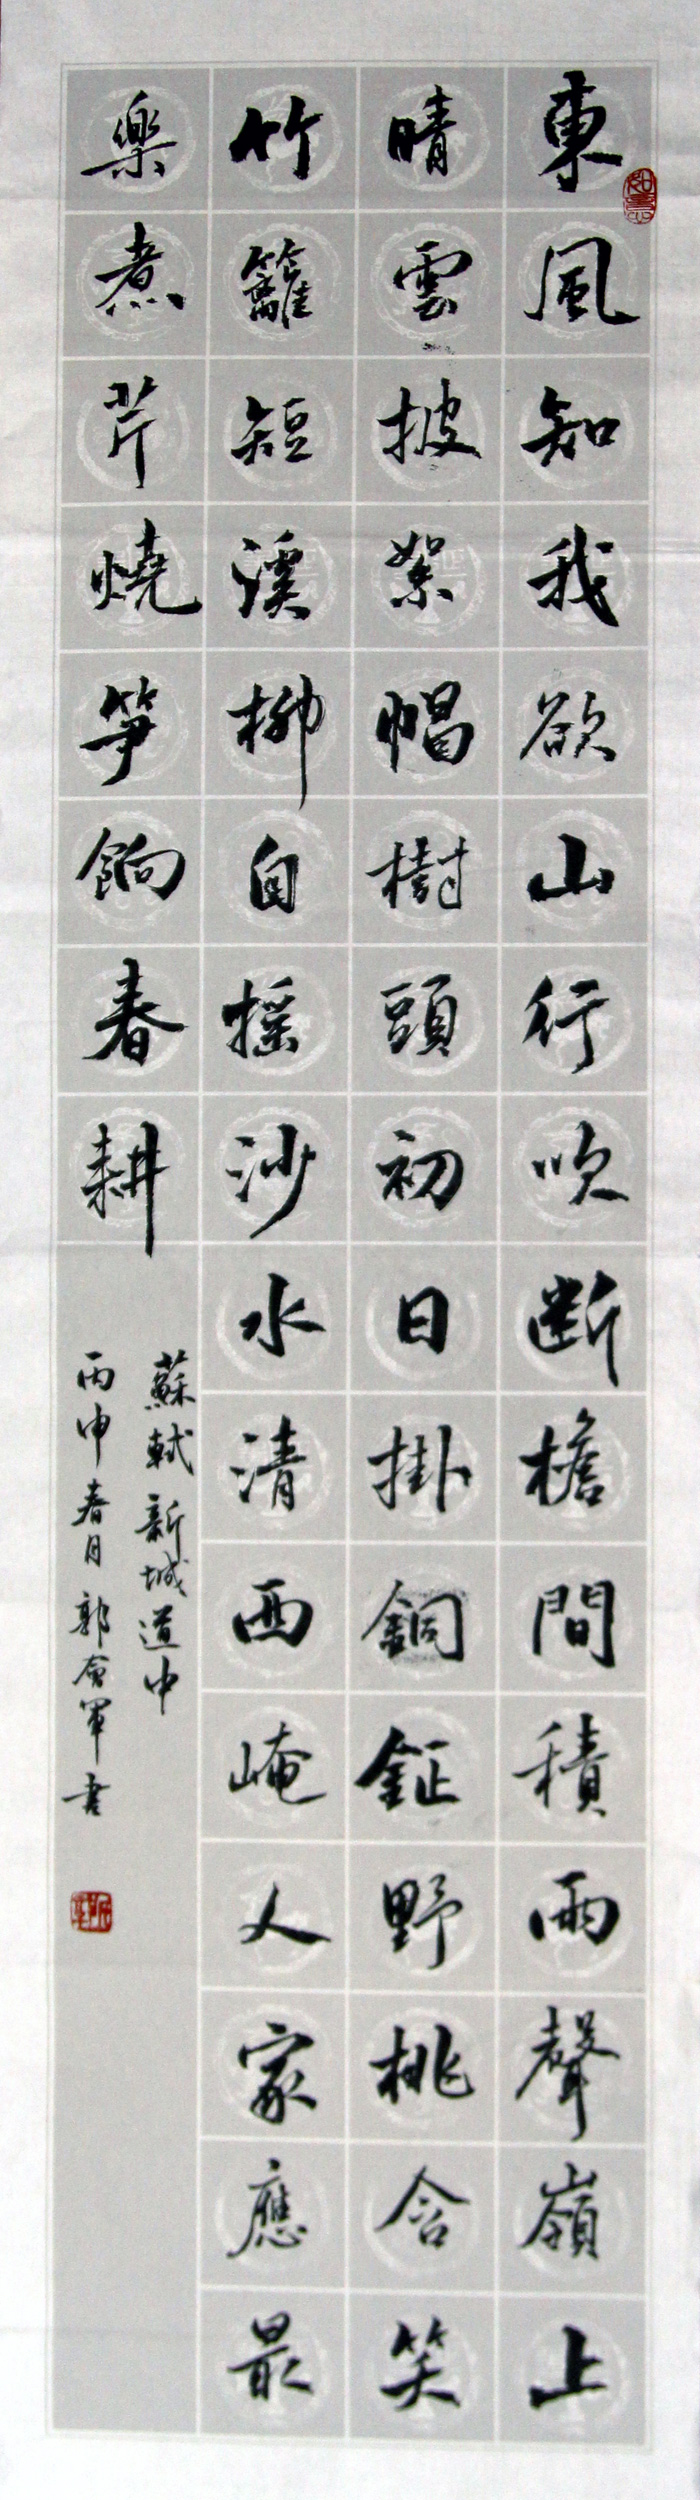 東風知我欲山行吹断檐間積雨聲嶺上
晴雲披絮帽樹頭初日掛銅鉦野桃含笑
竹籬短溪柳自摇沙水清西崦人家應最
樂煮芹燒笋餉春耕
蘇軾新城道中
丙申春月郭會軍書